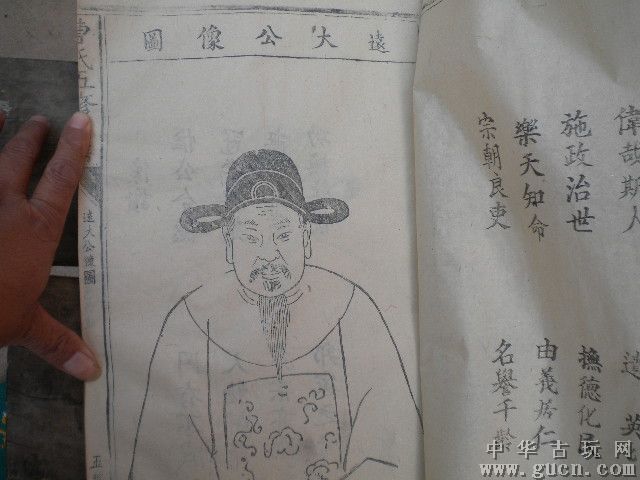 偉哉斯人
施政治世
撫德化
樂天知命
由義居仁
宗朝良吏
名譽千
遠大公像圖
氏五
遠大公 圖
中华古玩网
www.gucn.com